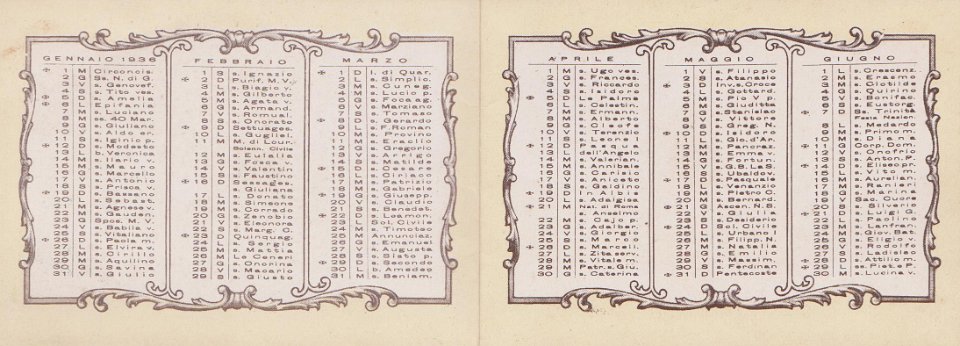 GENNAIO 1936
✠ 1 M Circoncis.
2 G Ss. N. di G.
3 V s. Genovef.
4 S s. Tito ves.
✠ 5 D s. Amelia
✠ 6 L Epifania
7 M s. Luciano
8 M ss. 40 Mar.
9 G s. Giuliano
10 V s. Aldo er.
11 S s. Iginio p.
✠ 12 D s. Modesto
13 L b. Veronica
14 M s. Ilario v.
15 M s. Mauro
16 G s. Marcello
17 V s. Antonio
18 S s. Prisca v.
✠ 19 D s. Bassano
20 L s. Sebast.
21 M s. Agnese v.
22 M s. Gauden.
23 G Spos. M. V.
24 V s. Babila v.
25 S s. Vitaliano
✠ 26 D s. Paola m.
27 L s. Elvira v.
28 M s. Cirillo
29 M s. Aquilino
30 G s. Savina
31 V s. Giulio
FEBBRAIO
1 S s. Ignazio
✠ 2 D Purif. M. V.
3 L s. Biagio v.
4 M s. Gilberto
5 M s. Agata v.
6 G s. Armand.
7 V s. Romual.
8 S s. Onorato
✠ 9 D Settuages.
10 L s. Gugliel.
11 M M. di Lour.
Solenn. Civile
12 M s. Eulalia
13 G s. Fosca v.
14 V s. Valentin
15 S s. Faustino
✠ 16 D Sessages.
s. Giuliana
17 L s. Donato
18 M s. Simeone
19 M s. Corrado
20 G s. Zenobra
21 V s. Eleonora
22 S s. Marg. C.
✠ 23 D Quinquag.
24 L s. Sergio
25 M s. Mattia
26 M Le Ceneri
27 G s. Onorina
28 V s. Macario
29 S s. Giusto
MARZO
✠ 1 D I. di Quar.
2 L s. Simplic.
3 M s. Cuneg.
4 M s. Lucio p.
5 G s. Foca ag.
6 V s. Marziano
7 S s. Tomaso
✠ 8 D s. Gerardo
9 L s. F. Roman
10 M s. Provino
11 M s. Eraclio
12 G s. Gregorio
13 V s. Arrigo
14 S s. Matilde
✠ 15 D s. Cesare
16 L s. Ciriaca
17 M s. Patrizio
18 M s. Gabriele
✠ 19 G s. Giusepp.
20 V s. Claudio
21 S s. Benedet.
✠ 22 D s. Leamon.
23 L Sol. Civile
24 M s. Timoteo
25 M Annunciaz.
26 G s. Emanuel
27 V s. Augusta
28 S s. Sisto p.
✠ 29 D s. Secondo
30 L b. Amedeo
31 M s. Beniam.
APRILE
1 M s. Ugo ves.
2 G s. Frances.
3 V s. Riccardo
4 S s. Isidoro
✠ 5 D Le Palme
6 L s. Celestin.
7 M s. Ermann.
8 M s. Alberto
9 G s. Cleofe
10 V s. Terenzio
11 S s. Leone I
✠ 12 D Pasqua
13 L dell'Angelo
14 M s. Valerian.
15 M s. Annibale
16 G s. Carisio
17 V s. Aniceto
18 S s. Galdino
✠ 19 D in Albis
20 L s. Adalgisa
✠ 21 M Nat. di Roma
s. Anselmo
22 M s. Cajo p.
23 G s. Adalber.
24 V s. Giorgio
25 S s. Marco
✠ 26 D s. Marcell.
27 L s. Zita serv.
28 M s. Vitale m.
29 M Patr. s. Giu.
30 G s. Caterina
MAGGIO
1 V s. Filippo
2 S s. Atanasio
✠ 3 D Inv. s. Croce
4 L s. Gottard.
5 M s. Pio V p.
6 M s. Giuditta
7 G s. Stanislao
8 V s. Vittore
9 S s. Greg. N.
✠ 10 D s. Isidoro
11 L s. Gio. d'Av.
12 M s. Pancraz.
13 M s. Emma v.
14 G s. Fortun.
15 V s. G. B. La S.
16 S s. Ubaldo v.
✠ 17 D s. Pasquale
18 L s. Venanzio
19 M s. Pietro C.
20 M s. Bernard.
✠ 21 G Ascen. N. S.
22 V s. Giulia
23 S s. Desiderio
✠ 24 D Sol. Civile
25 L s. Urbano I
26 M s. Filipp. N.
27 M s. Natalia
28 G s. Emilio
29 V s. Massim.
30 S s. Ferdinan
✠ 31 D Pentecoste
GIUGNO
1 L s. Crescenz.
2 M s. Erasmo
3 M s. Clotilde
4 G s. Quirino
5 V s. Bonifac.
6 S s. Eustorg.
✠ 7 D Ss. Trinità
Festa Nazion.
8 L s. Medardo
9 M s. Primo m.
10 M s. Diana
✠ 11 G Corp. Dom.
12 V s. Onofrio
13 S s. Anton. P.
✠ 14 D s. Eliseo pr.
15 L s. Vito m.
16 M s. Aurelian.
17 M s. Ranieri
18 G s. Marina
19 V Sac. Cuore
20 S s. Silverio
✠ 21 D s. Luigi G.
22 L s. Paolino
23 M s. Lanfran.
24 M s. Giov. Bat.
25 G s. Eligio v.
26 V s. Rodolfo
27 S s. Ladislao
✠ 28 D s. Attilio m.
✠ 29 L ss. Piet. e P.
30 M s. Lucina v.